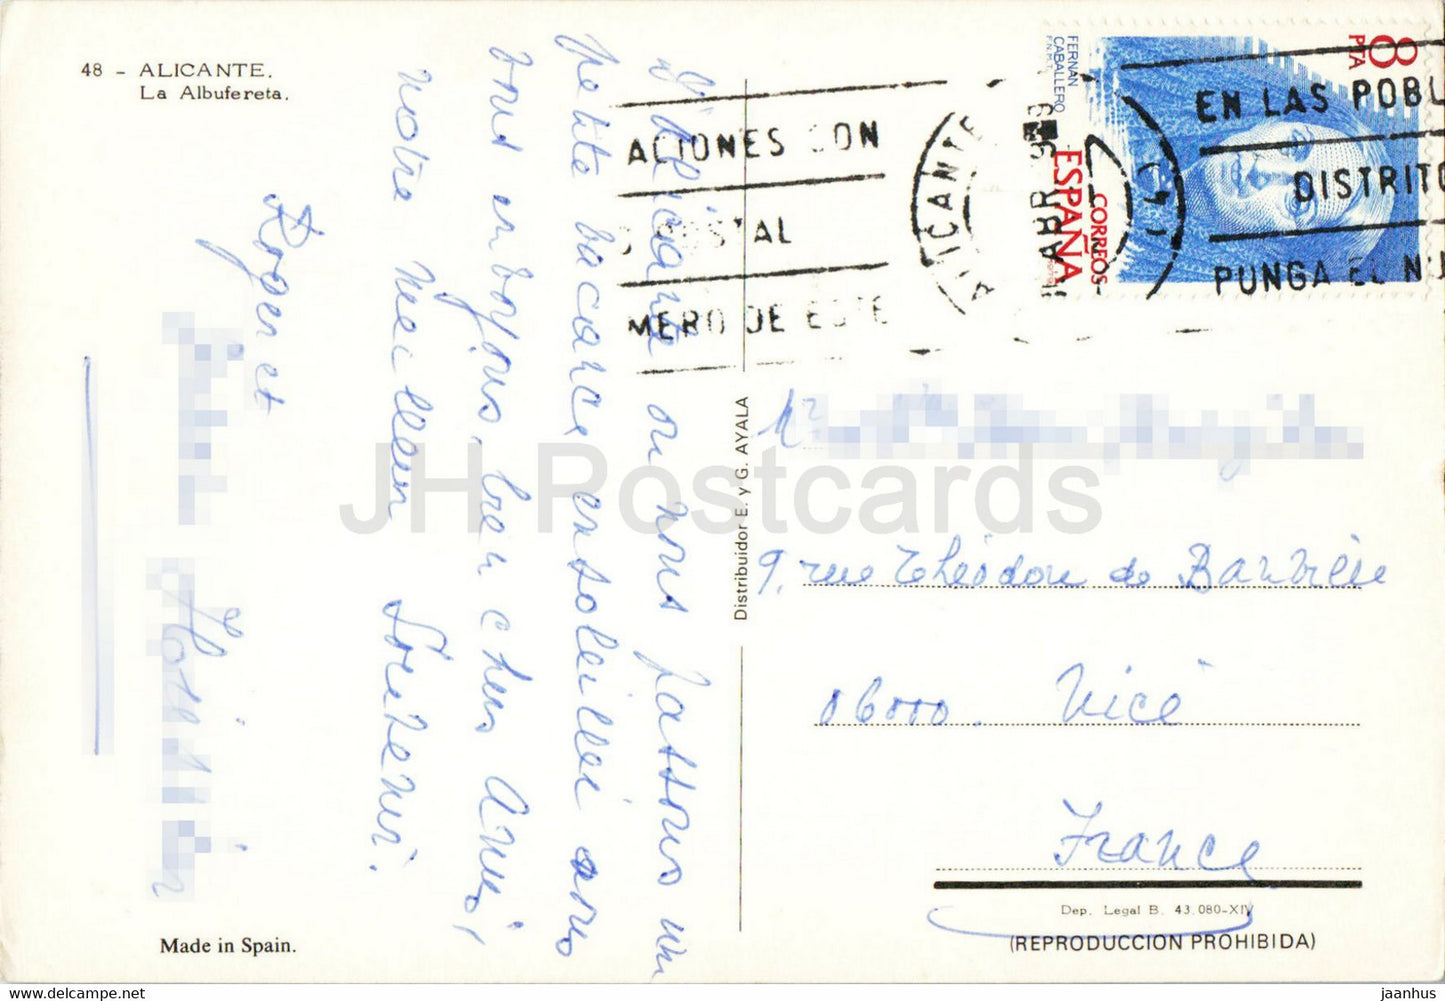 48 - ALICANTE.
La Albufereta.
D'Alicante ou nous passons une
petite vacance ensoleillée nous
vous envoyons, bien chers Amis,
notre meilleur Souvenir.
Roger et
Made in Spain.
Distribuidor E. y G. AYALA
8 PTA
FERNAN
CABALLERO
F.N.M.T.
ESPAÑA
CORREOS
ALICANTE
EN LAS POBL
ACIONES CON
DISTRITO
POSTAL
PONGA EL NU
MERO DE ESTE
9. rue Théodore de Banville
06000. Nice
France
Dep. Legal B. 43.080-XIV
(REPRODUCCION PROHIBIDA)
JH Postcards
https://www.delcampe.net
jaanhus